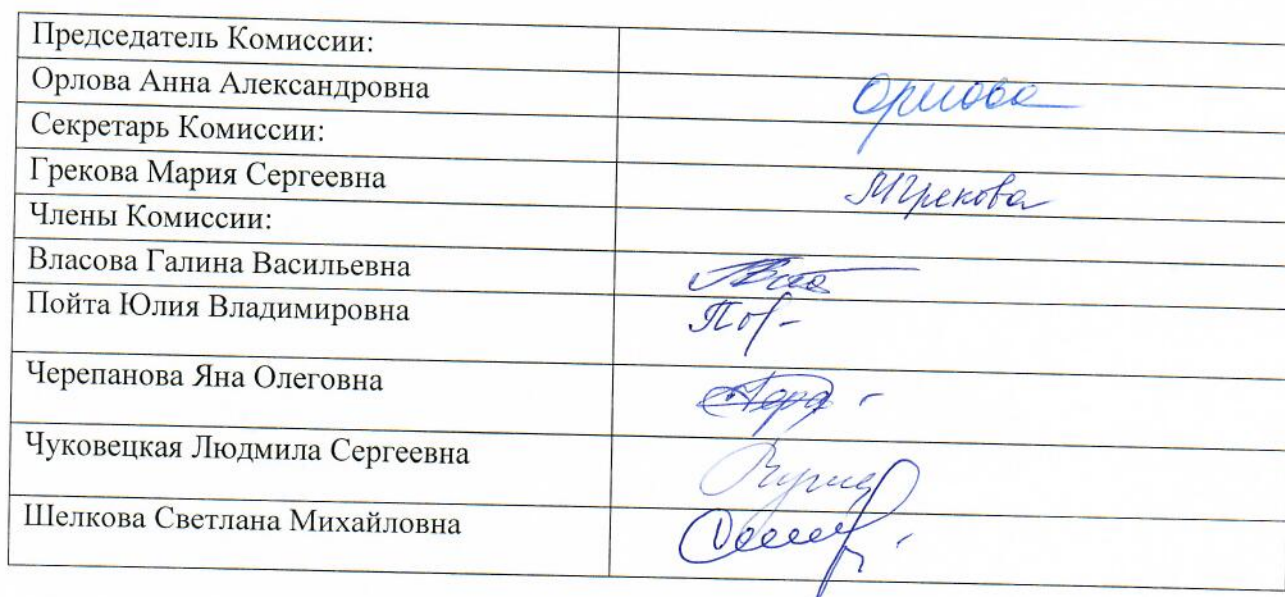 Председатель Комиссии:
Орлова Анна Александровна Орлова
Секретарь Комиссии:
Грекова Мария Сергеевна МГрекова
Члены Комиссии:
Власова Галина Васильевна
Пойта Юлия Владимировна
Черепанова Яна Олеговна
Чуковецкая Людмила Сергеевна
Шелкова Светлана Михайловна